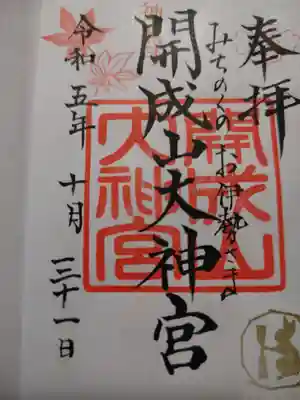 奉拝
みちのくのお伊勢さま
開成山大神宮
開成山大神宮
令和五年 十月 三十一日